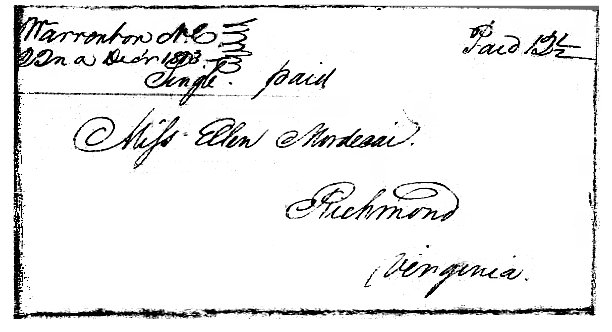 Warrenton N.C
22nd Decr 1813.
Paid 12½
Single. paid
Miss Ellen Mordecai.
Richmond
Virginia.